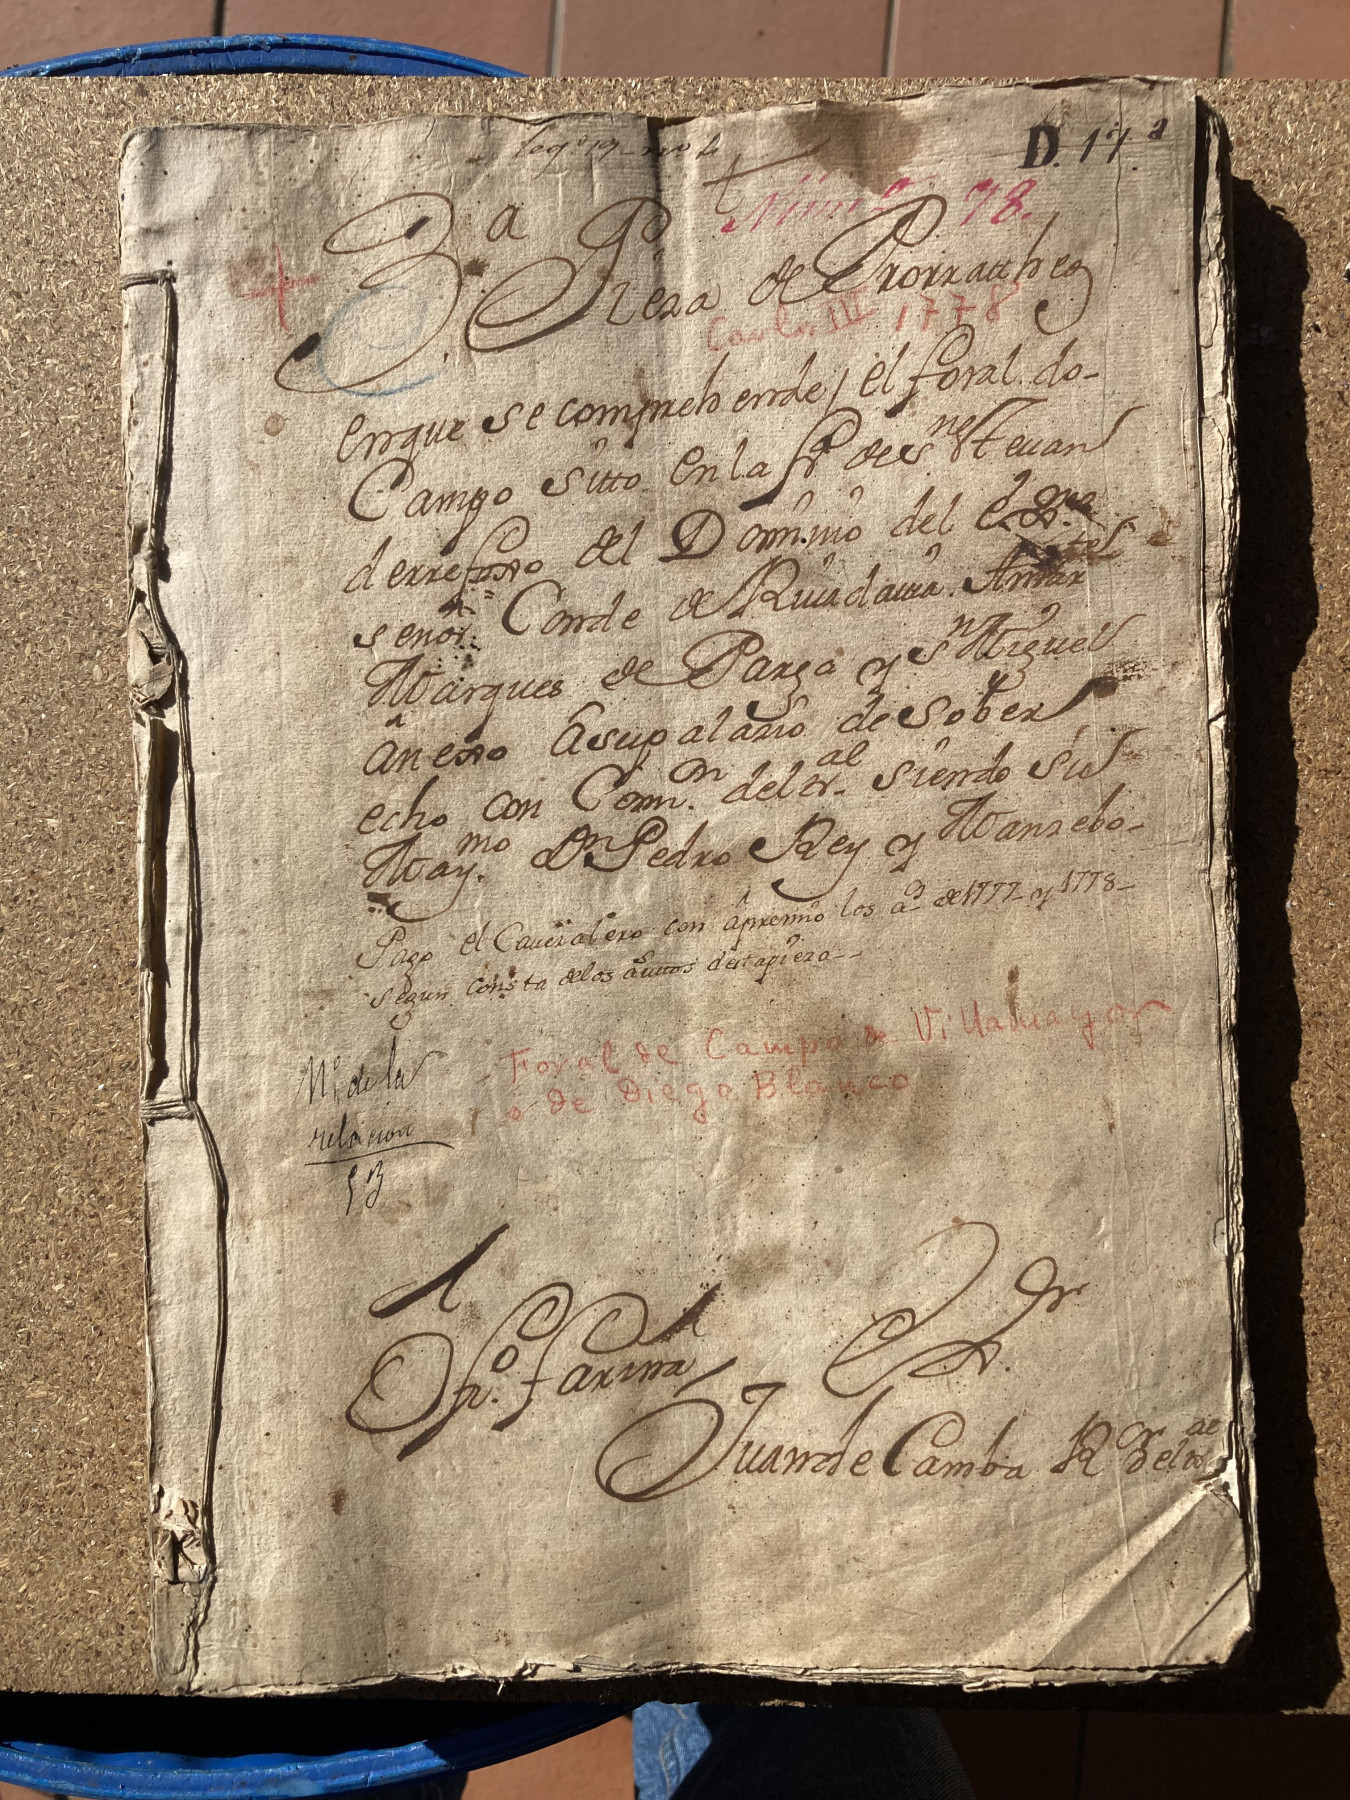 leg.º 19 - nº 4
D. 17ª
Núm.º 78.
3ª Pieza de Prorratheo
Carlos III 1778
enque se comprehende, el foral do-
Campo sitto en la fª de Sⁿ esteuan
derrefoxo del Dominio del
señor Conde de Riuadauia. Amar
Marques de Parga y Sⁿ Miguel
anexo asupalazio de Sober
echo con Comⁿ. deltrˡ. siendo sus
Mayᵐᵒ. Dⁿ Pedro Rey y Manzebo-
Pago el Cauezalero con apremio los aˢ de 1777- y 1778-
segun consta delos auttos destapieza--
Foral de Campo de Villamayor
o de Diego Blanco
Nº. de la
relacion
53
frº. farina
Juan de Camba Rºʳ deltrˡ